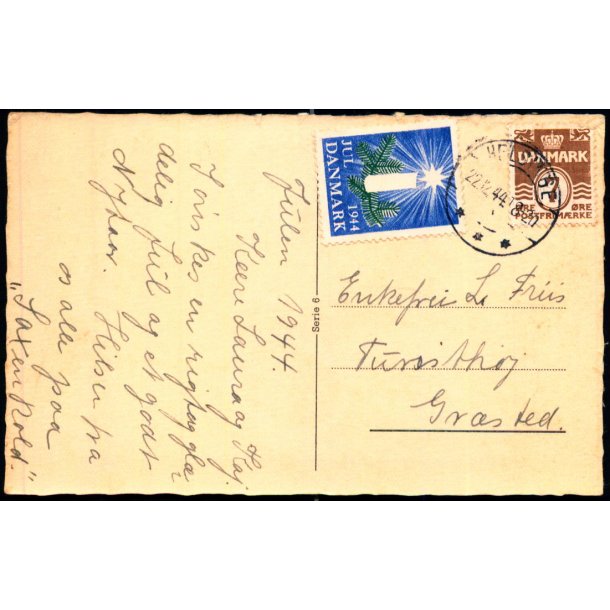 Julen 1944.
Kære Laura og Kaj.
I ønskes en rigtig glæ-
delig Jul og et godt
Nytaar. Hilsen fra
os alle paa
"Saxenkold."
Serie 6
JUL
1944
DANMARK
HEL
22.12.44
DANMARK
ØRE ØRE
POSTFRIMÆRKE
Enkefru L. Friis
Turisthøj
Græsted.